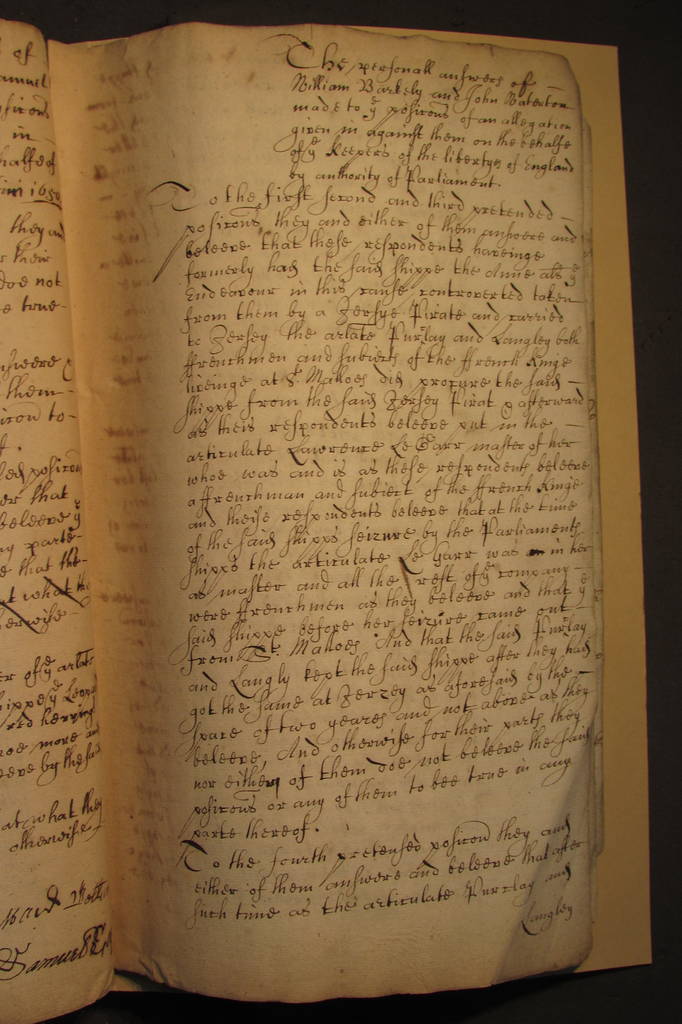 of
amuel
positrons
in
halfe of
in 1650
they and
their
doe not
e true
answere
them
to
posicon
er that
beleeve ye
parte
e that the
t what the
erwise
er of ye arlate
shippe ye Leop
red herring
noe more and
eve by the said
at what they
otherwise
Samuel
The personall answers of
William Barkely and John Waterton
made to ye posicons of an allegation
given in against them on the behalfe
of ye Keepers of the libertyes of England
by authority of Parliament.
To the first second and third pretended
posicons they and either of them answere and
beleeve that these respondents haveinge
formerly had the said shippe the Anne als ye
Endeavour in this cause controverted taken
from them by a Jersye Pirate and carried
to Jersey the arlate Purlay and Langley both
ffrenchmen and subiects of the ffrench Kinge
liveinge at St Malloes did procure the said
shippe from the said Jersey Pirat & afterward
as theis respondents beleeve put in the
articulate Lawrence Le Garr master of her
whoe was and is as these respondents beleeve
a ffrenchman and subiect of the ffrench Kinge
and theise respondents beleeve that at the time
of the said shipps seizure by the Parliaments
shipps the articulate Le Garr was in her
as master and all the rest of ye company
were ffrenchmen as they beleeve and that ye
said shippe before her seizure came out
from St Malloes And that the said Purlay
and Langly kept the said shippe after they had
got the same at Jerzey as aforesaid by the
space of two yeares and not above as they
beleeve, And otherwise for their parts they
nor either of them doe not beleeve the said
posicons or any of them to bee true in any
parte thereof.
To the fourth pretensed posicon they and
either of them answere and beleeve that after
such time as the articulate Purclay and
Langley